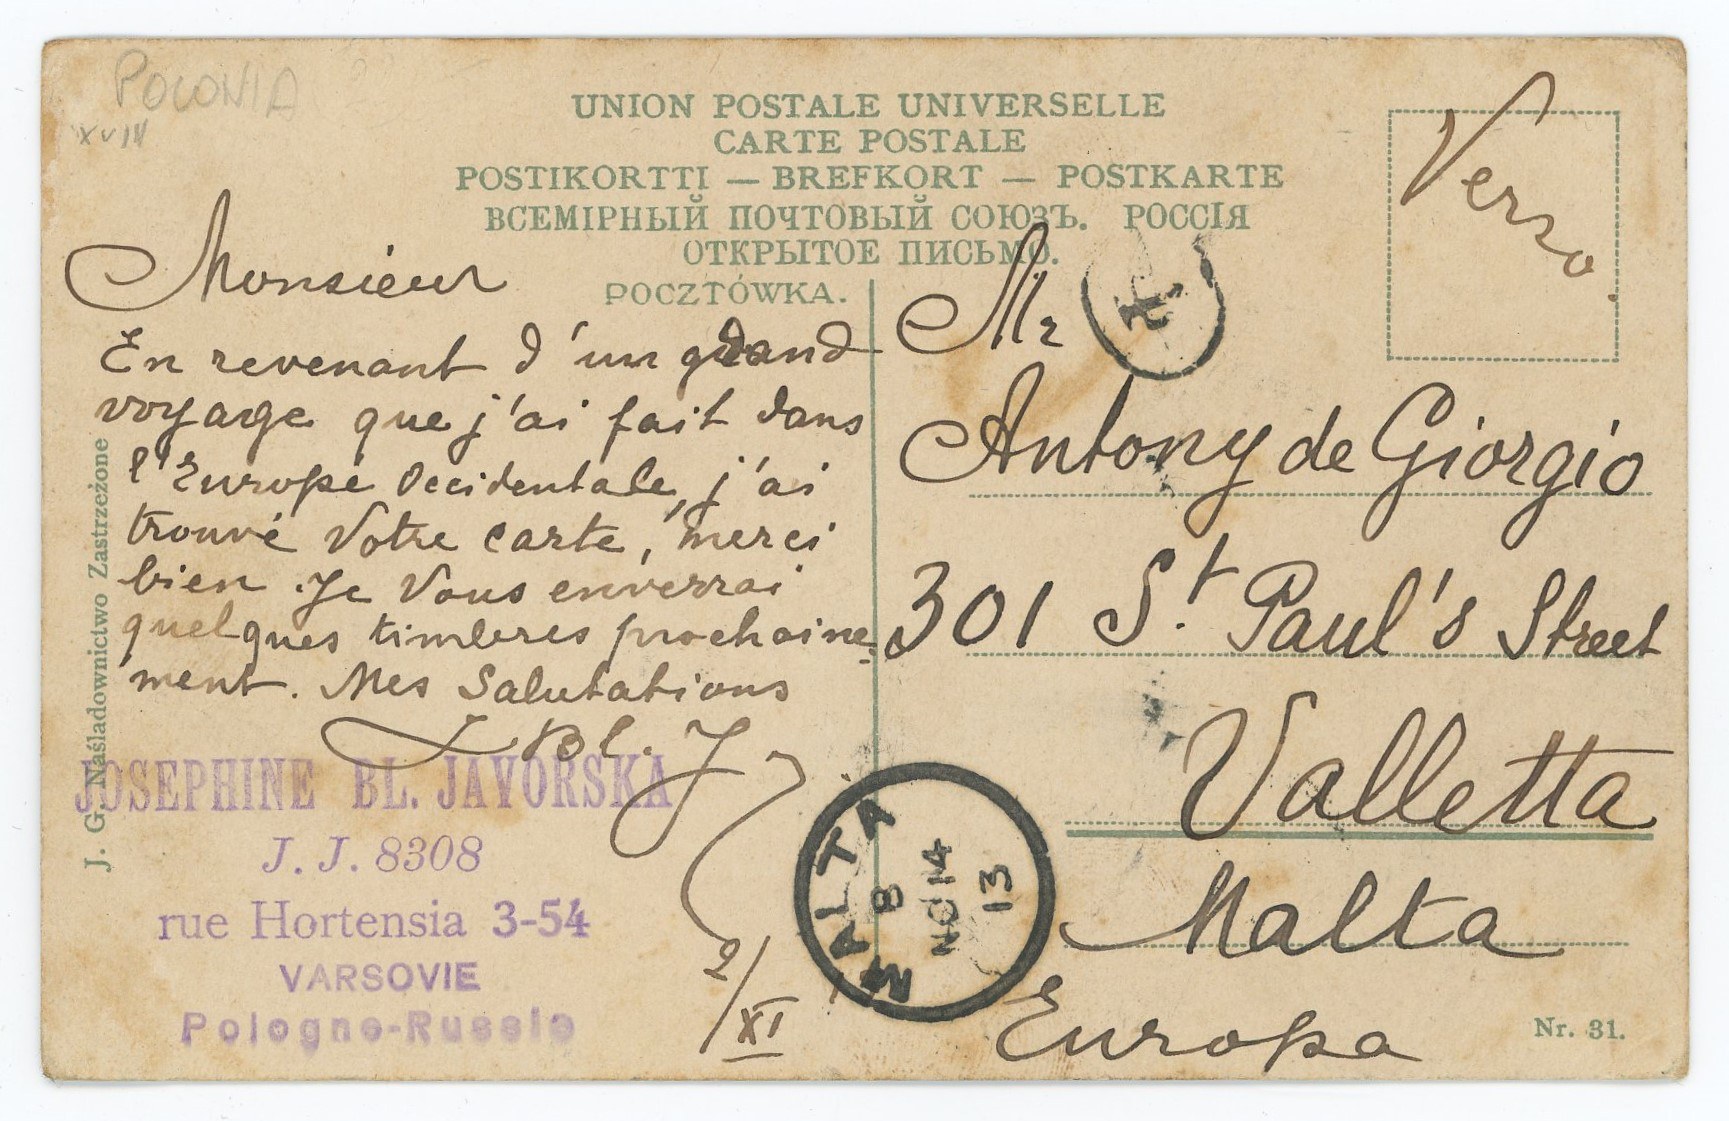 POLONIA
XVIII
UNION POSTALE UNIVERSELLE
CARTE POSTALE
POSTIKORTTI — BREFKORT — POSTKARTE
ВСЕМІРНЫЙ ПОЧТОВЫЙ СОЮЗЪ. РОССІЯ
ОТКРЫТОЕ ПИСЬМО.
POCZTÓWKA.
Verso.
T
Monsieur
En revenant d'un grand
voyage que j'ai fait dans
l'Europe Occidentale, j'ai
trouvé Votre carte, merci
bien. Je Vous enverrai
quelques timbres prochaine-
ment. Mes Salutations
Bl. J
2/XI
JOSEPHINE BL. JAVORSKA
J. J. 8308
rue Hortensia 3-54
VARSOVIE
Pologne-Russie
J. G. Naśladownictwo Zastrzeżone
Mr
Antony de Giorgio
301 St. Paul's Street
Valletta
Malta
Europa
MALTA
8
NO 14
13
Nr. 31.